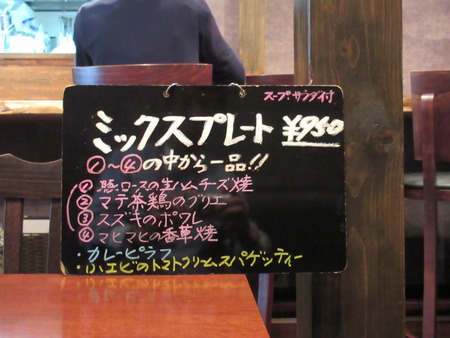 スープ・サラダ付
ミックスプレート ¥950
①〜④の中から一品!!
① 豚ロースの生ハムチーズ焼
② マテ茶鶏のブリエ
③ スズキのポワレ
④ マヒマヒの香草焼
・カレーピラフ
・小エビのトマトクリームスパゲッティー